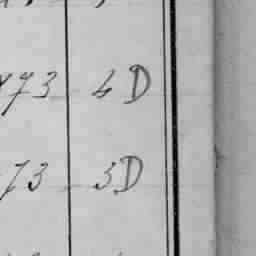 73 4D
73 3D